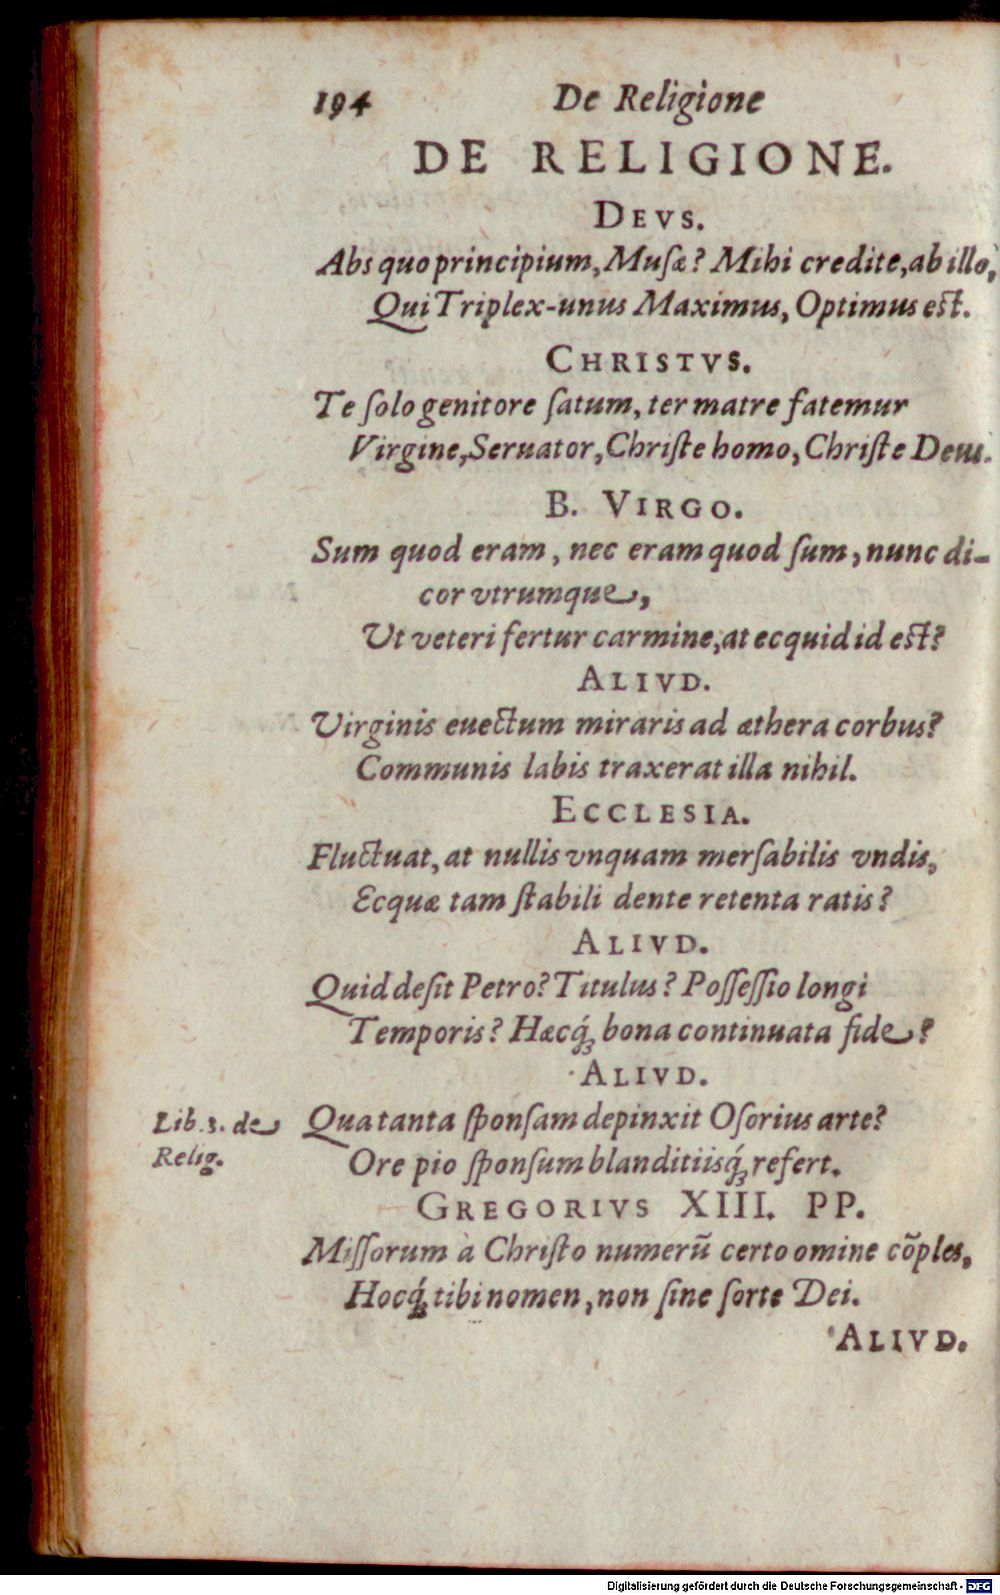 194 De Religione
DE RELIGIONE.
DEVS.
Abs quo principium, Muſæ? Mihi credite, ab illo,
Qui Triplex-unus Maximus, Optimus eſt.
CHRISTVS.
Te ſolo genitore ſatum, ter matre fatemur
Virgine, Seruator, Chriſte homo, Chriſte Deus.
B. VIRGO.
Sum quod eram, nec eram quod ſum, nunc di-
cor vtrumque,
Ut veteri fertur carmine, at ecquid id eſt?
ALIVD.
Virginis euectum miraris ad æthera corbus?
Communis labis traxerat illa nihil.
ECCLESIA.
Fluctuat, at nullis vnquam merſabilis vndis,
Ecquæ tam ſtabili dente retenta ratis?
ALIVD.
Quid deſit Petro? Titulus? Poſſeſſio longi
Temporis? Hæcq́ꝫ bona continuata fide?
ALIVD.
Lib. 3. de
Relig.
Qua tanta ſponſam depinxit Oſorius arte?
Ore pio ſponſum blanditiisq́ꝫ refert.
GREGORIVS XIII. PP.
Miſſorum à Chriſto numerũ certo omine cõples,
Hocq́ꝫ tibi nomen, non ſine ſorte Dei.
ALIVD.
Digitalisierung gefördert durch die Deutsche Forschungsgemeinschaft - DFG